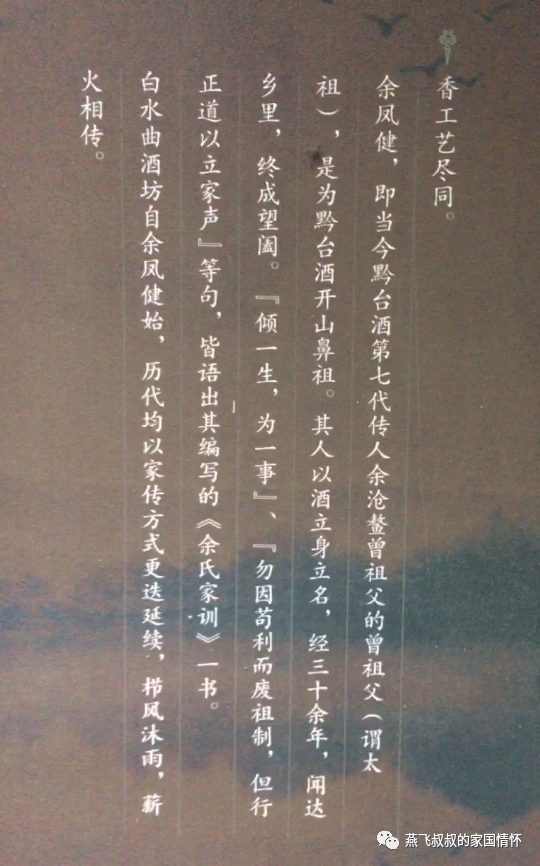 香工艺尽同。
余凤健，即当今黔台酒第七代传人余沧鳌曾祖父的曾祖父（谓太
祖），是为黔台酒开山鼻祖。其人以酒立身立名，经三十余年，闻达
乡里，终成望阖。『倾一生，为一事』、『勿因苟利而废祖制，但行
正道以立家声』等句，皆语出其编写的《余氏家训》一书。
白水曲酒坊自余凤健始，历代均以家传方式更迭延续，栉风沐雨，薪
火相传。
燕飞叔叔的家国情怀